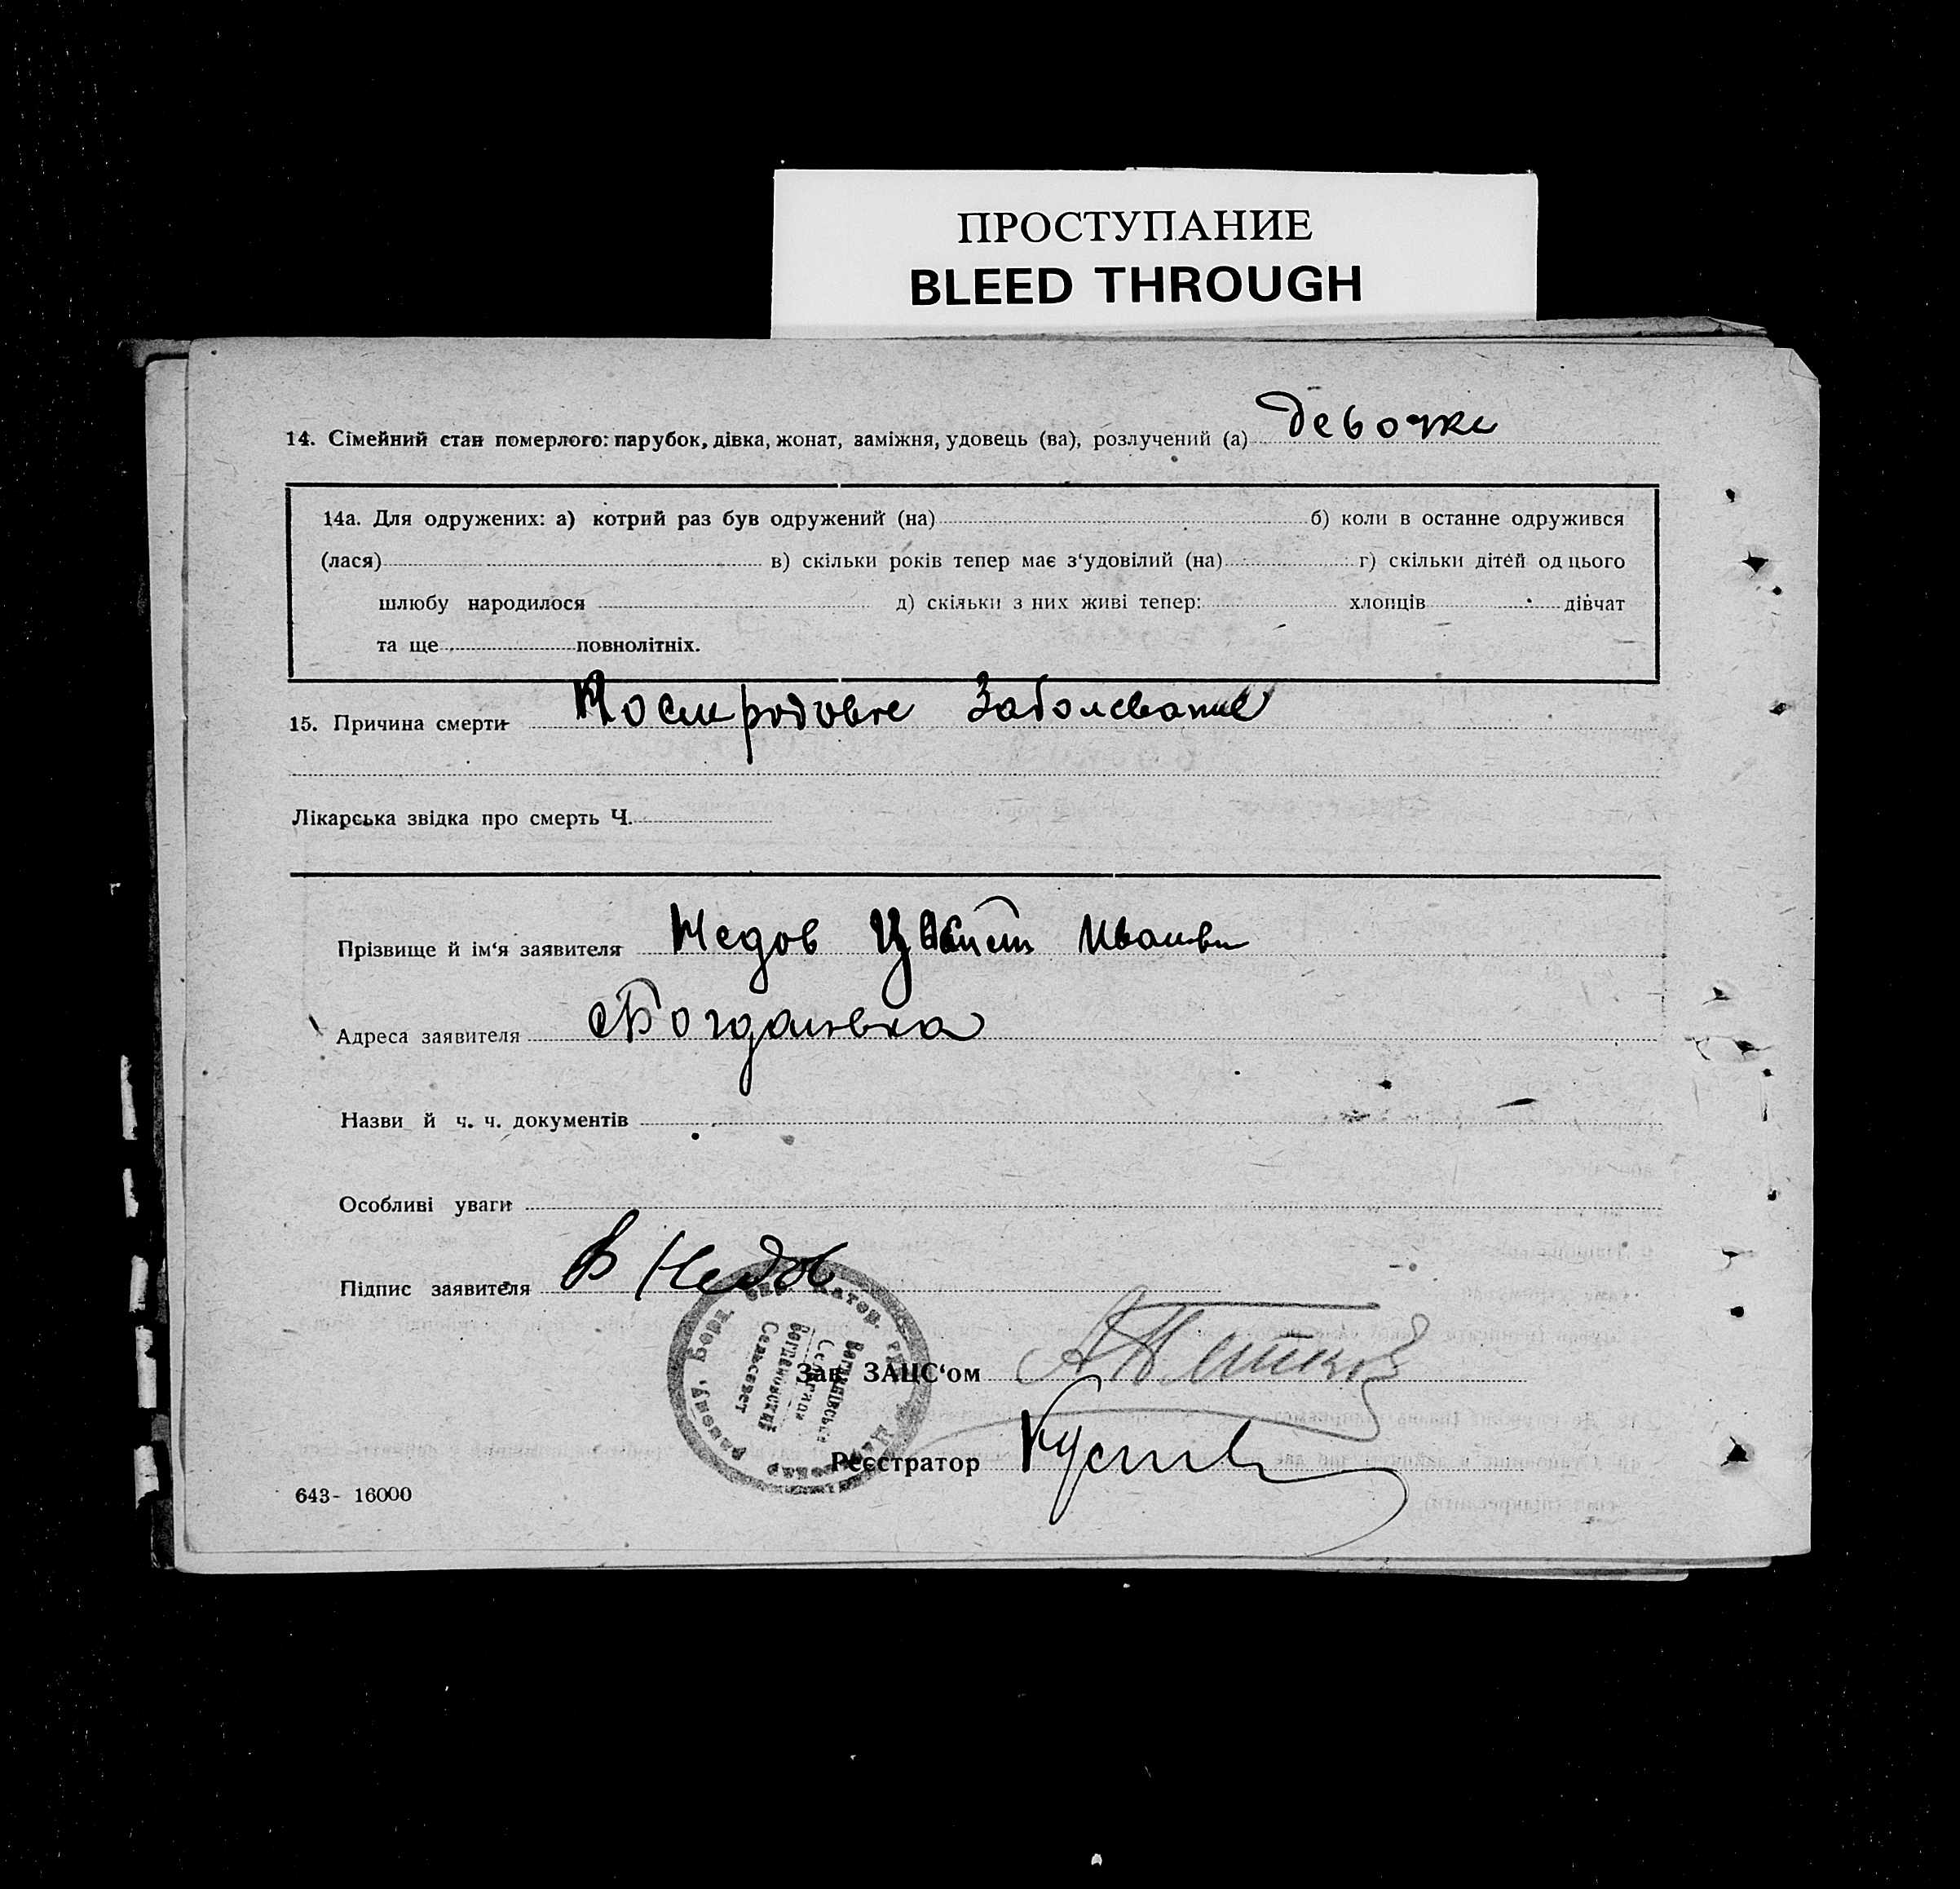 ПРОСТУПАНИЕ
BLEED THROUGH
14. Сімейний стан померлого: парубок, дівка, жонат, заміжня, удовець (ва), розлучений (а) девочка
14а. Для одружених: а) котрий раз був одружений (на) б) коли в останне одружився
(лася) в) скільки років тепер має з‘удовілий (на) г) скільки дітей од цього
шлюбу народилося д) скільки з них живі тепер: хлопців дівчат
та ще повнолітніх.
15. Причина смерти Послиродовое Заболевание
Лікарська звідка про смерть Ч.
Прізвище й ім‘я заявителя Недов Иванов
Адреса заявителя с Богдановка
Назви й ч. ч. документів
Особливі уваги
Підпис заявителя В Недов
Зав. ЗАЦС‘ом
Реєстратор
Богданівська
Сельрада
Богдановский
Сельсовет
643- 16000